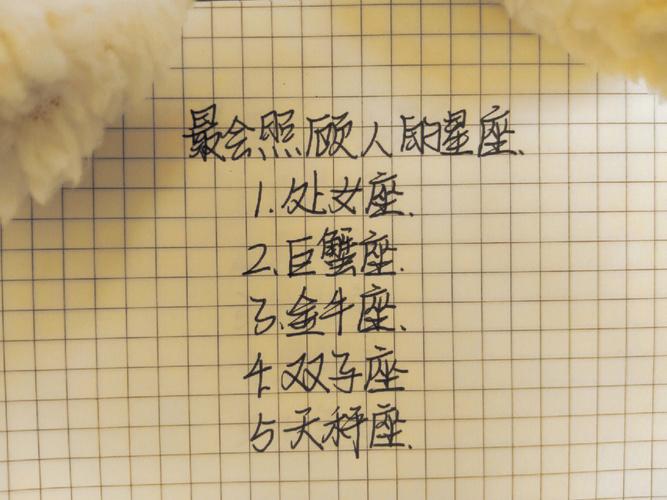 最会照顾人的星座.
1.处女座.
2.巨蟹座.
3.金牛座.
4.双子座
5天秤座.